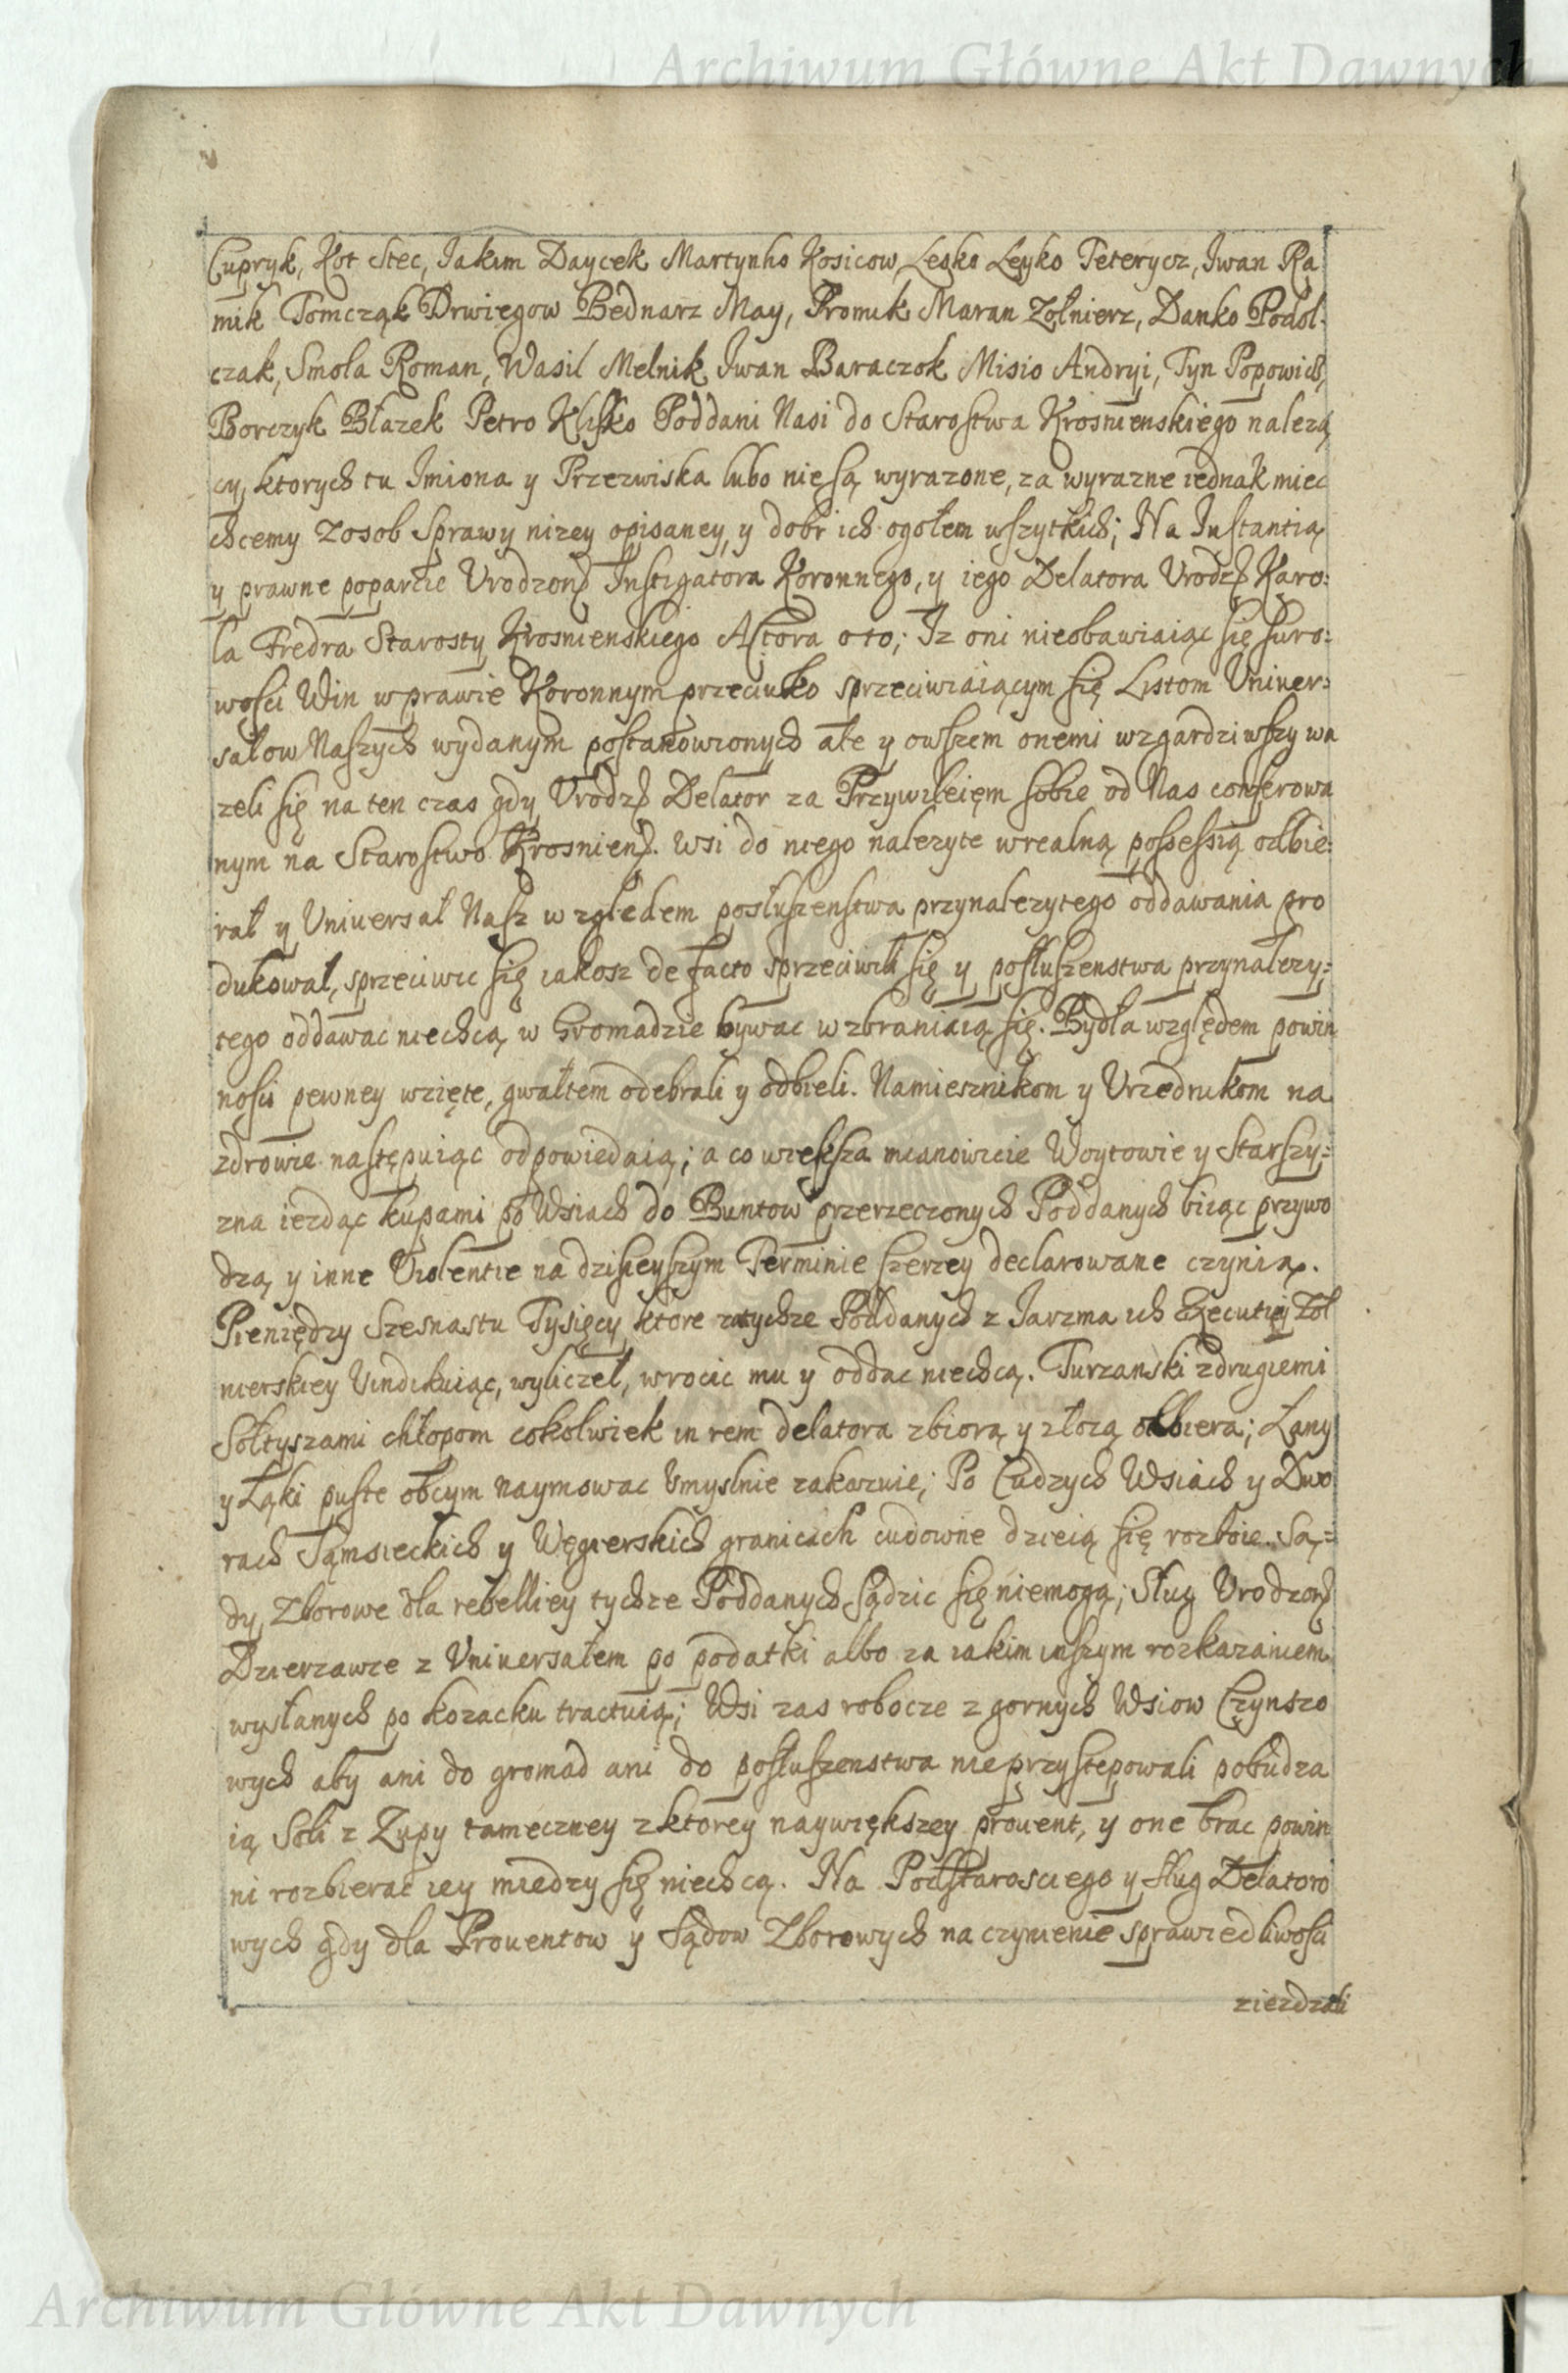 Archiwum Główne Akt Dawnych
Cupryk, Kot Stec, Jakim Daycek Martynho Kosicow, Lesko Leyko Teterycz, Iwan Ra
mik Tomcząk Drwięgow Bednarz May, Promik Maran Zołnierz, Danko Podol-
czak, Smola Roman, Wasil Melnik, Iwan Baraczok Misio Andryi, Tyn Popowich,
Borczyk Błazek Petro Klisko Poddani Nasi do Starostwa Krosnienskiego nalezą
cy, ktorych tu Imiona y Przezwiska lubo nie są wyrazone, za wyrazne iednak miec
chcemy z osob Sprawy nizey opisaney, y dobr ich ogołem wszytkich; Na Instantią
y prawne poparcie Urodzon Instigatora Koronnego, y iego Delatora Urodz Karo:
la Fredra Starosty Krosnienskiego Actora o to; Iz oni nieobawiaiąc się suro:
wosci Win w prawie Koronnym przeciwko sprzeciwiaiącym się Listom Univer:
sałow Naszych wydanym postanowionych ale y owszem onemi wzgardziwszy wa
zeli się na ten czas gdy Urodz Delator za Przywileięm sobie od Nas conferowa
nym na Starostwo Krosnien. Wsi do niego nalezyte w realną possessią odbie:
rał y Universał Nasz względem posłuszenstwa przynalezytego oddawania pro
dukował, sprzeciwic się iakosz de facto sprzeciwili się y posłuszenstwa przynalezy:
tego oddawac niechcą, w Gromadzie bywac wzbraniaią się. Bydła względem powin
nosci pewney wzięte, gwałtem odebrali y odbieli. Namiesznikom y Urzednikom na
zdrowie następuiąc odpowiedaią; a co większa mianowicie Woytowie y Starszy:
zna iezdąc kupami po Wsiach do Buntow przerzeczonych Poddanych biiąc przywo
dzą y inne Violentie na dzisieyszym Terminie szerzey declarowane czynią.
Pieniędzy Szesnastu Tysięcy, ktore za tychze Poddanych z Jarzma ich Executiey Zoł
nierskiey Vindikuiąc, wyliczel, wrocic mu y oddac niechcą. Turzanski z drugiemi
Sołtyszami chłopom cokolwiek in rem delatora zbiorą y złozą odbiera; Łany
y Łąki puste obcym naymowac Umyslnie zakazuie; Po Cudzych Wsiach y Dwo
rach Sąmsieckich y Węgierskich granicach cudowne dzieią się rozboie. Są:
dy, Zborowe dla rebelliey tychze Poddanych sądzic się niemogą; Sług Urodzon
Dzierzawce z Universałem po podatki albo za iakim inszym rozkazaniem
wysłanych po kozacku tractuią; Wsi zas robocze z gornych Wsiow Czynszo
wych aby ani do gromad ani do posłuszenstwa nieprzystepowali pobudza
ią Soli z Zupy tameczney z ktorey naywiększey provent, y one brac powin
ni rozbierac iey miedzy się niechcą. Na Podstarosciego y sług Delatoro
wych gdy dla Proventow y Sądow Zborowych na czynienie sprawiedliwosci
ziezdzali
Archiwum Główne Akt Dawnych